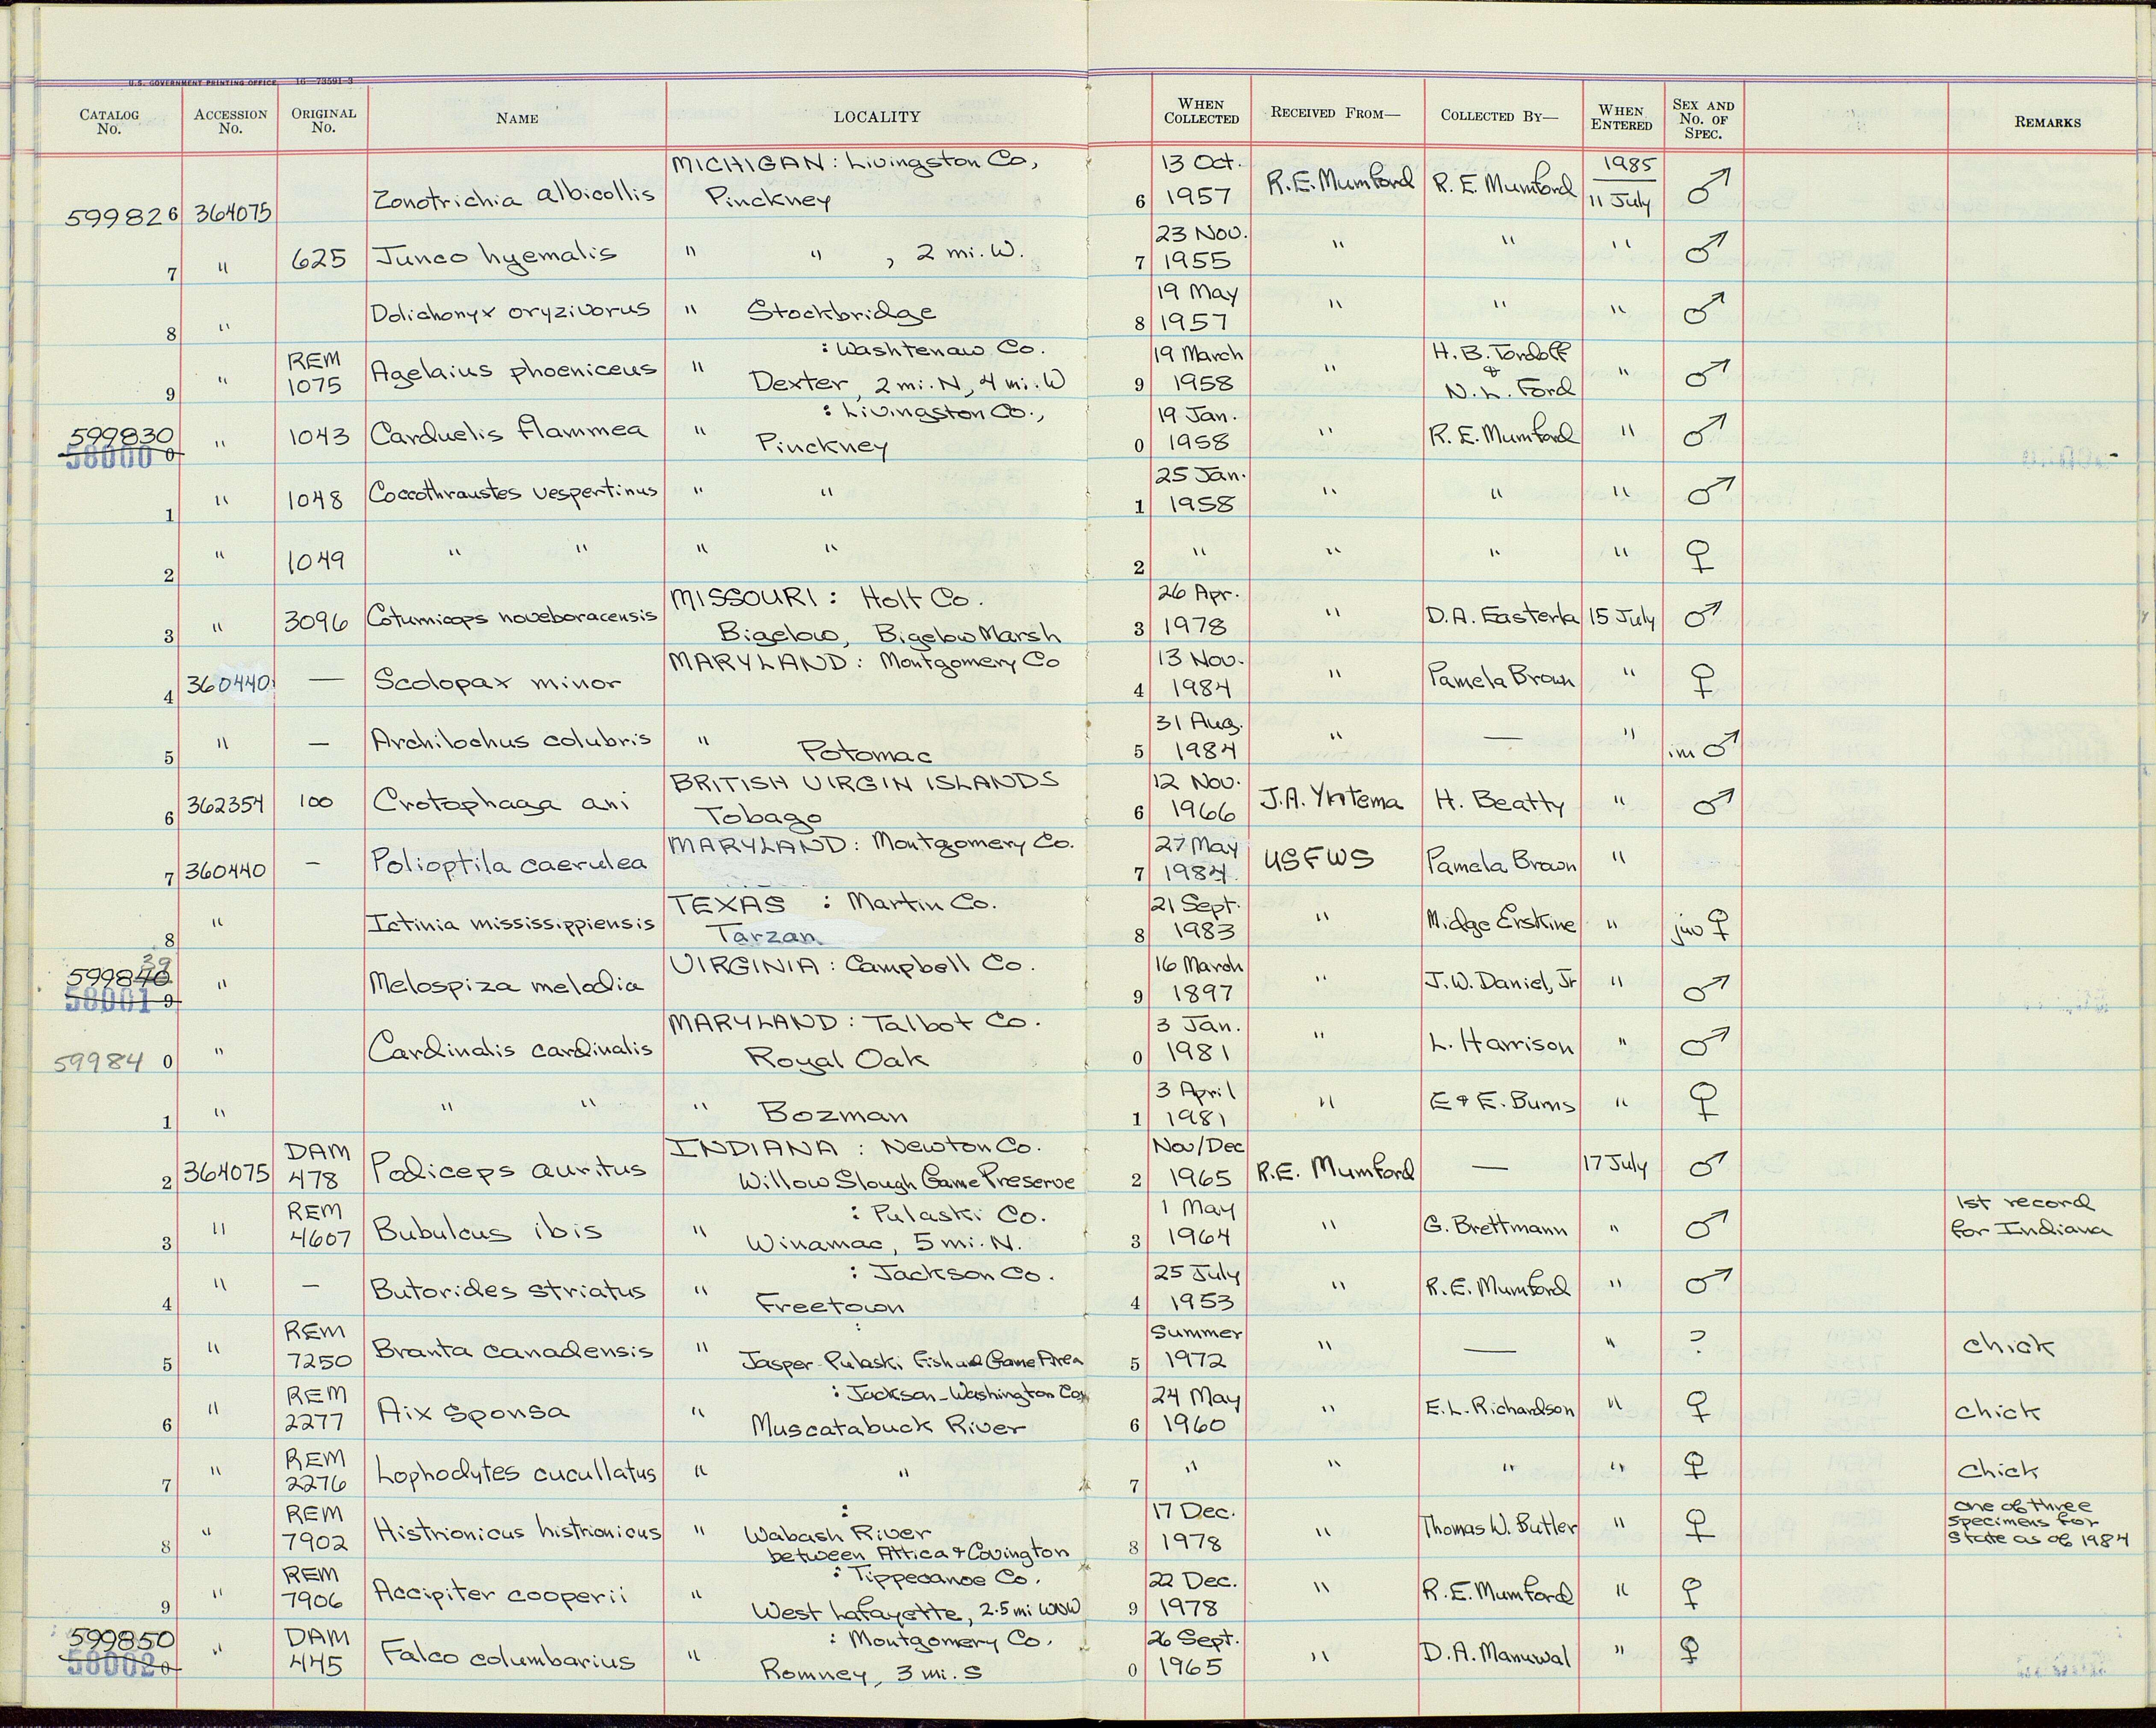 U.S. GOVERNMENT PRINTING OFFICE 16—73591-3
CATALOG No. ACCESSION No. ORIGINAL No. NAME LOCALITY WHEN COLLECTED RECEIVED FROM— COLLECTED BY— WHEN ENTERED SEX AND No. OF SPEC. REMARKS
MICHIGAN: Livingston Co, 13 Oct. 1985
599826 364075 Zonotrichia albicollis Pinckney 6 1957 R.E. Mumford R. E. Mumford 11 July ♂
23 Nov.
7 " 625 Junco hyemalis " " , 2 mi. W. 7 1955 " " " ♂
19 May
8 " Dolichonyx oryzivorus " Stockbridge 8 1957 " " " ♂
REM : Washtenaw Co. 19 March H. B. Tordoff
9 " 1075 Agelaius phoeniceus " Dexter, 2 mi. N, 4 mi. W 9 1958 " & N. L. Ford " ♂
: Livingston Co., 19 Jan.
599830 " 1043 Carduelis flammea " Pinckney 0 1958 " R. E. Mumford " ♂
58000 0
25 Jan.
1 " 1048 Coccothraustes vespertinus " " 1 1958 " " " ♂
2 " 1049 " " " " 2 " " " " ♀
MISSOURI: Holt Co. 26 Apr.
3 " 3096 Coturnicops noveboracensis Bigelow, Bigelow Marsh 3 1978 " D.A. Easterla 15 July ♂
MARYLAND: Montgomery Co 13 Nov.
4 360440 — Scolopax minor 4 1984 " Pamela Brown " ♀
31 Aug.
5 " — Archilochus colubris " Potomac 5 1984 " — " im ♂
BRITISH VIRGIN ISLANDS 12 Nov.
6 362354 100 Crotophaga ani Tobago 6 1966 J.A. Yntema H. Beatty " ♂
MARYLAND: Montgomery Co. 27 May
7 360440 — Polioptila caerulea 7 1984 USFWS Pamela Brown "
TEXAS : Martin Co. 21 Sept.
8 " Ictinia mississippiensis Tarzan 8 1983 " Midge Erskine " juv ♀
39 VIRGINIA: Campbell Co. 16 March
599840 " Melospiza melodia 9 1897 " J.W. Daniel, Jr " ♂
58001 9
MARYLAND: Talbot Co. 3 Jan.
59984 0 " Cardinalis cardinalis Royal Oak 0 1981 " L. Harrison " ♂
3 April
1 " " " " Bozman 1 1981 " E & E. Burns " ♀
DAM INDIANA : Newton Co. Nov/Dec
2 364075 478 Podiceps auritus Willow Slough Game Preserve 2 1965 R.E. Mumford — 17 July ♂
REM : Pulaski Co. 1 May 1st record
3 " 4607 Bubulcus ibis " Winamac, 5 mi. N. 3 1964 " G. Brettmann " ♂ for Indiana
: Jackson Co. 25 July
4 " — Butorides striatus " Freetown 4 1953 " R.E. Mumford " ♂
REM : Summer
5 " 7250 Branta canadensis " Jasper-Pulaski Fish and Game Area 5 1972 " — " ? chick
REM : Jackson-Washington Cos. 24 May
6 " 2277 Aix sponsa " Muscatabuck River 6 1960 " E.L. Richardson " ♀ chick
REM
7 " 2276 Lophodytes cucullatus " " 7 " " " " ♀ chick
REM : 17 Dec. one of three
8 " 7902 Histrionicus histrionicus " Wabash River 8 1978 " Thomas W. Butler " ♀ specimens for
between Attica & Covington State as of 1984
REM : Tippecanoe Co. 22 Dec.
9 " 7906 Accipiter cooperii " West Lafayette, 2.5 mi WNW 9 1978 " R.E. Mumford " ♀
DAM : Montgomery Co. 26 Sept.
599850 " 445 Falco columbarius " Romney, 3 mi. S 0 1965 " D.A. Manuwal " ♀
58002 0